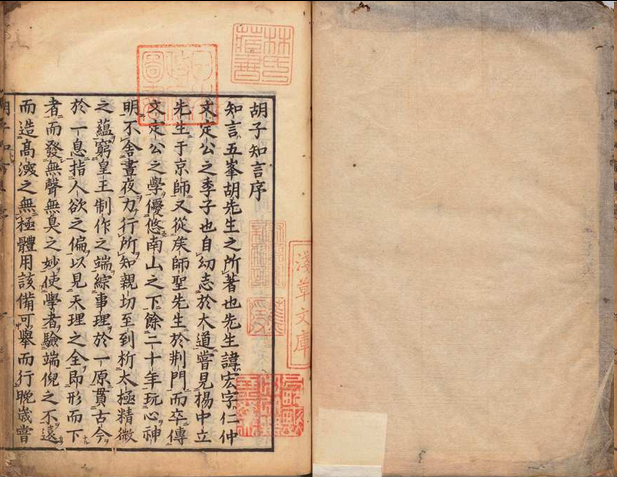 胡子知言序
知言五峯胡先生之所著也先生諱宏字仁仲
文定公之季子也自幼志於大道嘗見楊中立
先生于京師又從矦師聖先生於荆門而卒傳
文定公之學優悠南山之下餘二十年玩心神
明不舍晝夜力行所知親切至到析太極精微
之蘊窮皇王制作之端綜事理於一原貫古今
於一息指人欲之偏以見天理之全即形而下
者而發無聲無臭之妙使學者驗端倪之不遠
而造高深之無極體用該備可舉而行晚歲嘗
淺草文庫
林氏藏書